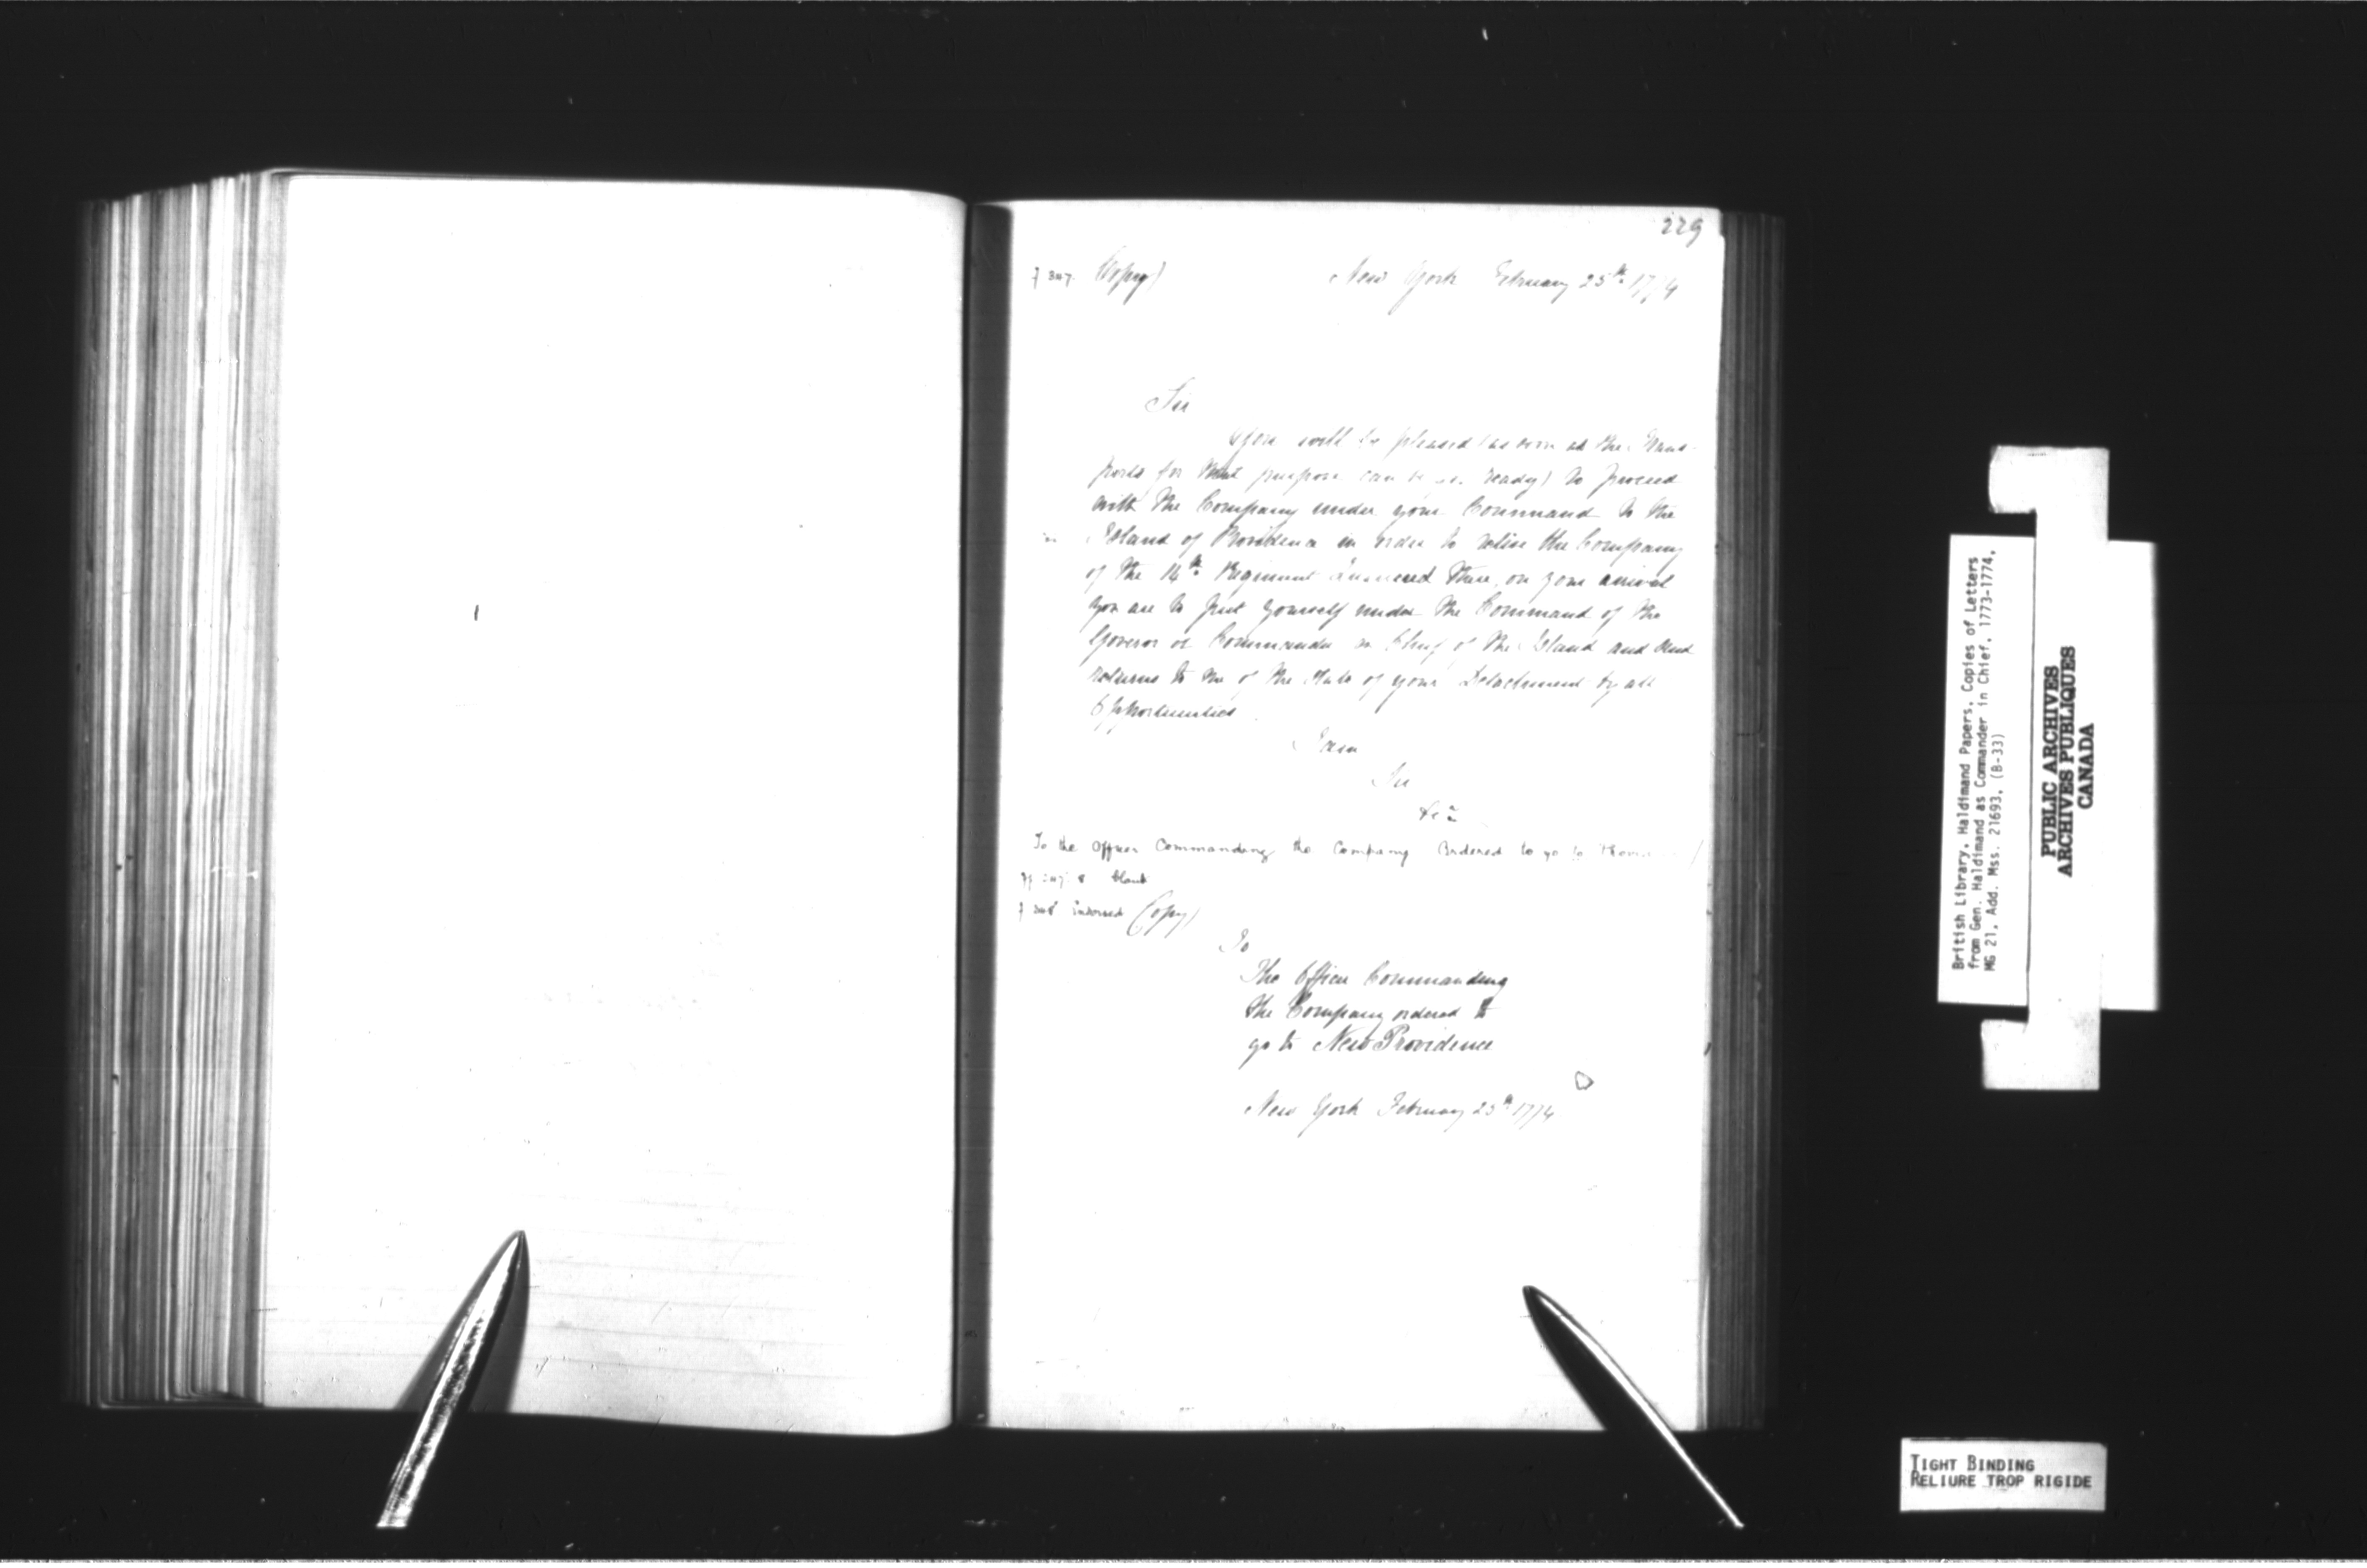 229
f 347. Copy) New York February 25th 1774
Sir
You will be pleased (as soon as the Trans-
ports for that purpose can be ready) to proceed
with the Company under your Command to the
Island of Providence in order to relive the Company
of the 14th Regiment there, on your arrival
you are to put yourself under the Command of the
Goveror or Commander in Chief of the Island and send
returns to me of the State of your Detachment by all
Opportunities
I am
Sir
&ca
To the Officer Commanding the Company Ordered to go to
blank
f 348 indorsed Copy)
To
The Officer Commanding
the Company ordered to
go to New Providence
New York February 25th 1774
British Library, Haldimand Papers, Copies of Letters
from Gen. Haldimand as Commander in Chief, 1773-1774,
MG 21, Add. Mss. 21693, (B-33)
PUBLIC ARCHIVES
ARCHIVES PUBLIQUES
CANADA
TIGHT BINDING
RELIURE TROP RIGIDE